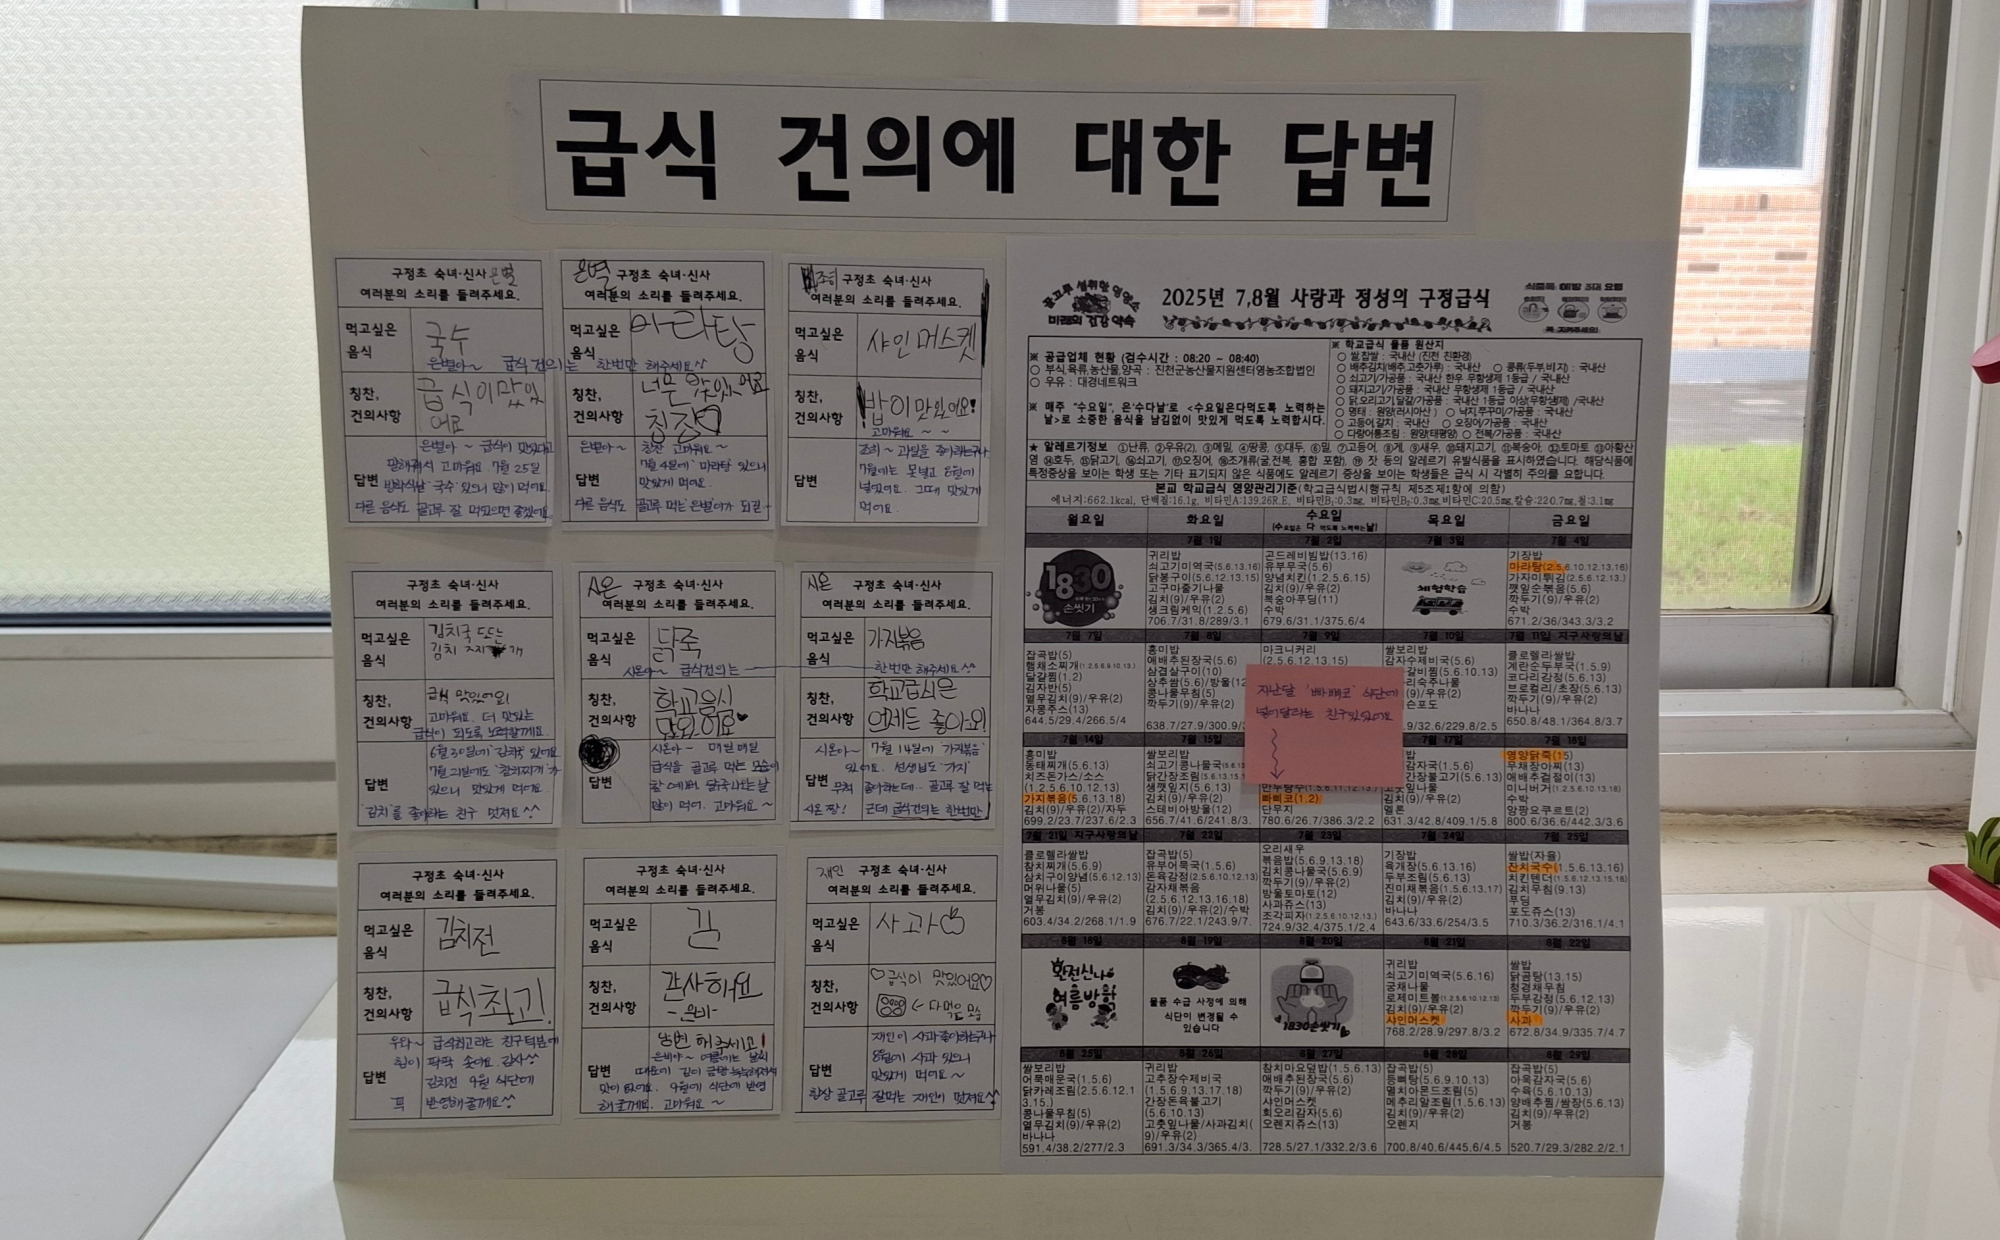 급식 건의에 대한 답변
구정초 숙녀·신사 은별
여러분의 소리를 들려주세요.
먹고싶은 음식
국수
은별아~ 급식 건의는 한번만 해주세요^^
칭찬, 건의사항
급식이 맛있어요
답변
은별아~ 급식이 맛있다고
말해줘서 고마워요 7월 25일
국수 있으니 많이 먹어요.
다른 음식도 골고루 잘 먹었으면 좋겠어요
은별 구정초 숙녀·신사
여러분의 소리를 들려주세요.
먹고싶은 음식
마라탕
칭찬, 건의사항
너무 맛있어요
답변
은별아~ 칭찬 고마워요~
7월 4일에 마라탕 있으니
맛있게 먹어요.
다른 음식도 골고루 먹는 은별이가 되길~
구정초 숙녀·신사
여러분의 소리를 들려주세요.
먹고싶은 음식
샤인머스켓
칭찬, 건의사항
밥이 맛있어요!
고마워요~~
답변
과일을 좋아하는구나
7월에는 못넣고 8월에
넣었어요. 그때 맛있게
먹어요.
구정초 숙녀·신사
여러분의 소리를 들려주세요.
먹고싶은 음식
김치국 또는
김치
칭찬, 건의사항
급식 맛있어요!
고마워요. 더 맛있는
급식이 되도록 노력할게요.
답변
6월 30일에 김치국 있어요
7월 21일에도 '참치찌개'가
있으니 맛있게 먹어요.
'김치'를 좋아하는 친구 멋져요^^
시온 구정초 숙녀·신사
여러분의 소리를 들려주세요.
먹고싶은 음식
닭죽
시온아~ 급식건의는 한번만 해주세요^^
칭찬, 건의사항
학교음식 맛있어요
답변
시온아~ 매일매일
급식을 골고루 먹는 모습이
많이 먹어. 고마워요~
시온 구정초 숙녀·신사
여러분의 소리를 들려주세요.
먹고싶은 음식
가지볶음
칭찬, 건의사항
학교급식은
언제든 좋아요!
답변
시온아~ 7월 14일에 '가지볶음'
있어요. 선생님도 '가지'
무척 좋아하는데.. 골고루 잘 먹는
시온 짱! 근데 급식건의는 한번만!
구정초 숙녀·신사
여러분의 소리를 들려주세요.
먹고싶은 음식
김치전
칭찬, 건의사항
급식최고!
답변
우와~ 급식최고라는 친구덕분에
힘이 팍팍 솟아요. 감사^^
김치전 9월 식단에
꼭 반영해줄게요^^
구정초 숙녀·신사
여러분의 소리를 들려주세요.
먹고싶은 음식
김
칭찬, 건의사항
감사해요
-은비-
답변해주세요!
답변
은비야~ 여름에는 날씨
때문에 김이 금방 눅눅해져서
맛이 없어요. 9월에 식단에 반영
해 줄게요. 고마워요~
재인 구정초 숙녀·신사
여러분의 소리를 들려주세요.
먹고싶은 음식
사과
칭찬, 건의사항
급식이 맛있어요
← 다먹을 모습
답변
재인이 사과 좋아하는구나
8월에 사과 있으니
맛있게 먹어요~
항상 골고루 잘먹는 재인이 멋져요^^
골고루 섭취한 영양소
미래의 건강 약속
2025년 7,8월 사랑과 정성의 구정급식
식중독 예방 3대 요령
꼭 지켜주세요!
※ 공급업체 현황 (검수시간 : 08:20 ~ 08:40)
○ 부식,육류,농산물,양곡 : 진천군농산물지원센터영농조합법인
○ 우유 : 대경네트워크
※ 매주 "수요일", 은'수다날'로 <수요일은다먹도록 노력하는
날>로 소중한 음식을 남김없이 맛있게 먹도록 노력합시다.
※ 학교급식 물품 원산지
○ 쌀,찹쌀 : 국내산 (진천 친환경)
○ 배추김치(배추,고춧가루) : 국내산 ○ 콩류(두부,비지) : 국내산
○ 쇠고기/가공품 : 국내산 한우 무항생제 1등급 / 국내산
○ 돼지고기/가공품 : 국내산 무항생제 1등급 / 국내산
○ 닭,오리고기,달걀/가공품 : 국내산 1등급 이상(무항생제) /국내산
○ 명태 : 원양(러시아산) ○ 낙지,쭈꾸미/가공품 : 국내산
○ 고등어,갈치 : 국내산 ○ 오징어/가공품 : 국내산
○ 다랑어통조림 : 원양(태평양) ○ 전복/가공품 : 국내산
★ 알레르기정보 ①난류, ②우유(2), ③메밀, ④땅콩, ⑤대두, ⑥밀, ⑦고등어, ⑧게, ⑨새우, ⑩돼지고기, ⑪복숭아, ⑫토마토 ⑬아황산
염 ⑭호두, ⑮닭고기, ⑯쇠고기, ⑰오징어, ⑱조개류(굴,전복, 홍합 포함), ⑲ 잣 등의 알레르기 유발식품을 표시하였습니다. 해당식품에
특정증상을 보이는 학생 또는 기타 표기되지 않은 식품에도 알레르기 증상을 보이는 학생들은 급식 시 각별히 주의를 요합니다.
본교 학교급식 영양관리기준(학교급식법시행규칙 제5조제1항에 의함)
에너지:662.1kcal, 단백질:16.1g, 비타민A:139.26R.E, 비타민B₁:0.3mg, 비타민B₂:0.3mg,비타민C:20.5mg,칼슘:220.7mg,철:3.1mg
월요일 화요일 수요일 목요일 금요일
(수요일은 다 먹도록 노력하는날)
7월 1일 7월 2일 7월 3일 7월 4일
1830
손씻기
귀리밥
쇠고기미역국(5.6.13.16)
닭봉구이(5.6.12.13.15)
고구마줄기나물
김치(9)/우유(2)
생크림케익(1.2.5.6)
706.7/31.8/289/3.1
곤드레비빔밥(13.16)
유부무국(5.6)
양념치킨(1.2.5.6.15)
김치(9)/우유(2)
복숭아푸딩(11)
수박
679.6/31.1/375.6/4
체험학습
기장밥
마라탕(2.5.6.10.12.13.16)
가자미튀김(2.5.6.12.13.)
깻잎순볶음(5.6)
깍두기(9)/우유(2)
수박
671.2/36/343.3/3.2
7월 7일 7월 8일 7월 9일 7월 10일 7월 11일 지구사랑의날
잡곡밥(5)
햄채소찌개(1.2.5.6.9.10.13.)
달걀찜(1.2)
김자반(5)
열무김치(9)/우유(2)
자몽쥬스(13)
644.5/29.4/266.5/4
홍미밥
애배추된장국(5.6)
삼겹살구이(10)
상추쌈(5.6)/방울(12
콩나물무침(5)
깍두기(9)/우유(2)
638.7/27.9/300.9/3
마크니커리
(2.5.6.12.13.15)
쌀보리밥
감자수제비국(5.6)
갈비찜(5.6.10.13)
숙주나물
우유(2)
포도
9/32.6/229.8/2.5
클로렐라쌀밥
계란순두부국(1.5.9)
코다리강정(5.6.13)
브로컬리/초장(5.6.13)
깍두기(9)/우유(2)
바나나
650.8/48.1/364.8/3.7
지난달 '빠삐코' 식단에
넣어달라는 친구있었어요
7월 14일 7월 15일 7월 18일
홍미밥
동태찌개(5.6.13)
치즈돈가스/소스
(1.2.5.6.10.12.13)
가지볶음(5.6.13.18)
김치(9)/우유(2)/자두
699.2/23.7/237.6/2.3
쌀보리밥
쇠고기콩나물국
닭간장조림(5.6.13.15.
생깻잎지(5.6.13)
김치(9)/우유(2)
스테비아방울(12)
656.7/41.6/241.8/3.
만두탕수(1.5.6.11.12.13.)
빠삐코(1.2)
단무지
780.6/26.7/386.3/2.2
감자국(1.5.6)
간장불고기(5.6.13)
고춧잎나물
김치(9)/우유(2)
멜론
631.3/42.8/409.1/5.8
영양닭죽(15)
무채장아찌(13)
애배추겉절이(13)
미니버거(1.2.5.6.10.13.16.18)
수박
앙팡요쿠르트(2)
800.6/36.6/442.3/3.6
7월 21일 지구사랑의날 7월 22일 7월 23일 7월 24일 7월 25일
클로렐라쌀밥
참치찌개(5.6.9)
삼치구이양념(5.6.12.13)
머위나물(5)
열무김치(9)/우유(2)
거봉
603.4/34.2/268.1/1.9
잡곡밥(5)
유부어묵국(1.5.6)
돈육강정(2.5.6.10.12.13)
감자채볶음
(2.5.6.12.13.16.18)
김치(9)/우유(2)/수박
676.7/22.1/243.9/7.
오리새우
볶음밥(5.6.9.13.18)
김치콩나물국(5.6.9)
깍두기(9)/우유(2)
방울토마토(12)
사과쥬스(13)
조각피자(1.2.5.6.10.12.13.)
724.9/32.4/375.1/2.4
기장밥
육개장(5.6.13.16)
두부조림(5.6.13)
진미채볶음(1.5.6.13.17)
김치(9)/우유(2)
바나나
643.6/33.6/254/3.5
쌀밥(자율)
잔치국수(1.5.6.13.16)
치킨텐더(1.2.5.6.12.13.15.16.18)
김치무침(9.13)
푸딩
포도쥬스(13)
710.3/36.2/316.1/4.1
8월 18일 8월 19일 8월 20일 8월 21일 8월 22일
완전신나는
여름방학
물품 수급 사정에 의해
식단이 변경될 수
있습니다
1830손씻기
귀리밥
쇠고기미역국(5.6.16)
궁채나물
로제미트볼(1.2.5.6.10.12.13)
김치(9)/우유(2)
샤인머스켓
768.2/28.9/297.8/3.2
쌀밥
닭곰탕(13.15)
청경채무침
두부강정(5.6.12.13)
깍두기(9)/우유(2)
사과
672.8/34.9/335.7/4.7
8월 25일 8월 26일 8월 27일 8월 28일 8월 29일
쌀보리밥
어묵매운국(1.5.6)
닭카레조림(2.5.6.12.1
3.15.)
콩나물무침(5)
열무김치(9)/우유(2)
바나나
591.4/38.2/277/2.3
귀리밥
고추장수제비국
(1.5.6.9.13.17.18)
간장돈육불고기
(5.6.10.13)
고춧잎나물/사과김치(
9)/우유(2)
691.3/34.3/365.4/3.
참치마요덮밥(1.5.6.13)
애배추된장국(5.6)
깍두기(9)/우유(2)
샤인머스켓
회오리감자(5.6)
오렌지쥬스(13)
728.5/27.1/332.2/3.6
잡곡밥(5)
등뼈탕(5.6.9.10.13)
멸치아몬드조림(5)
메추리알조림(1.5.6.13)
김치(9)/우유(2)
오렌지
700.8/40.6/445.6/4.5
잡곡밥(5)
아욱감자국(5.6)
수육(5.6.10.13)
양배추찜/쌈장(5.6.13)
김치(9)/우유(2)
거봉
520.7/29.3/282.2/2.1